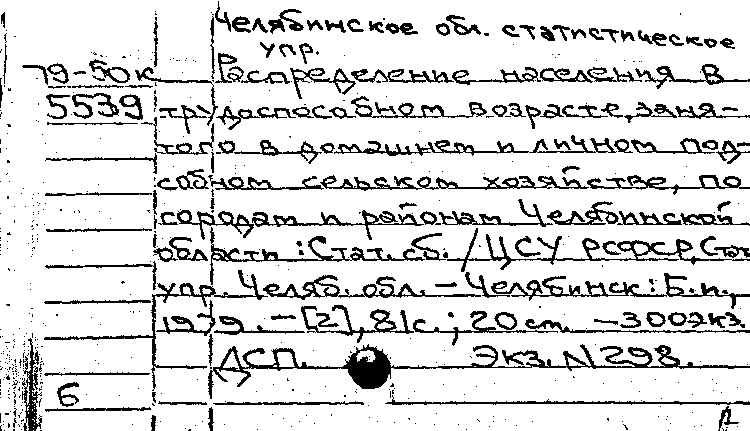 Челябинское обл. статистическое
упр.
79-50к Распределение населения в
5539 трудоспособном возрасте, заня-
того в домашнем и личном под-
собном сельском хозяйстве, по
городам и районам Челябинской
области : Стат. сб. / ЦСУ РСФСР, Стат.
упр. Челяб. обл. – Челябинск : Б.и.,
1979. – [2], 81 с. ; 20 см. – 300 экз.
ДСП. Экз. N 298.
6